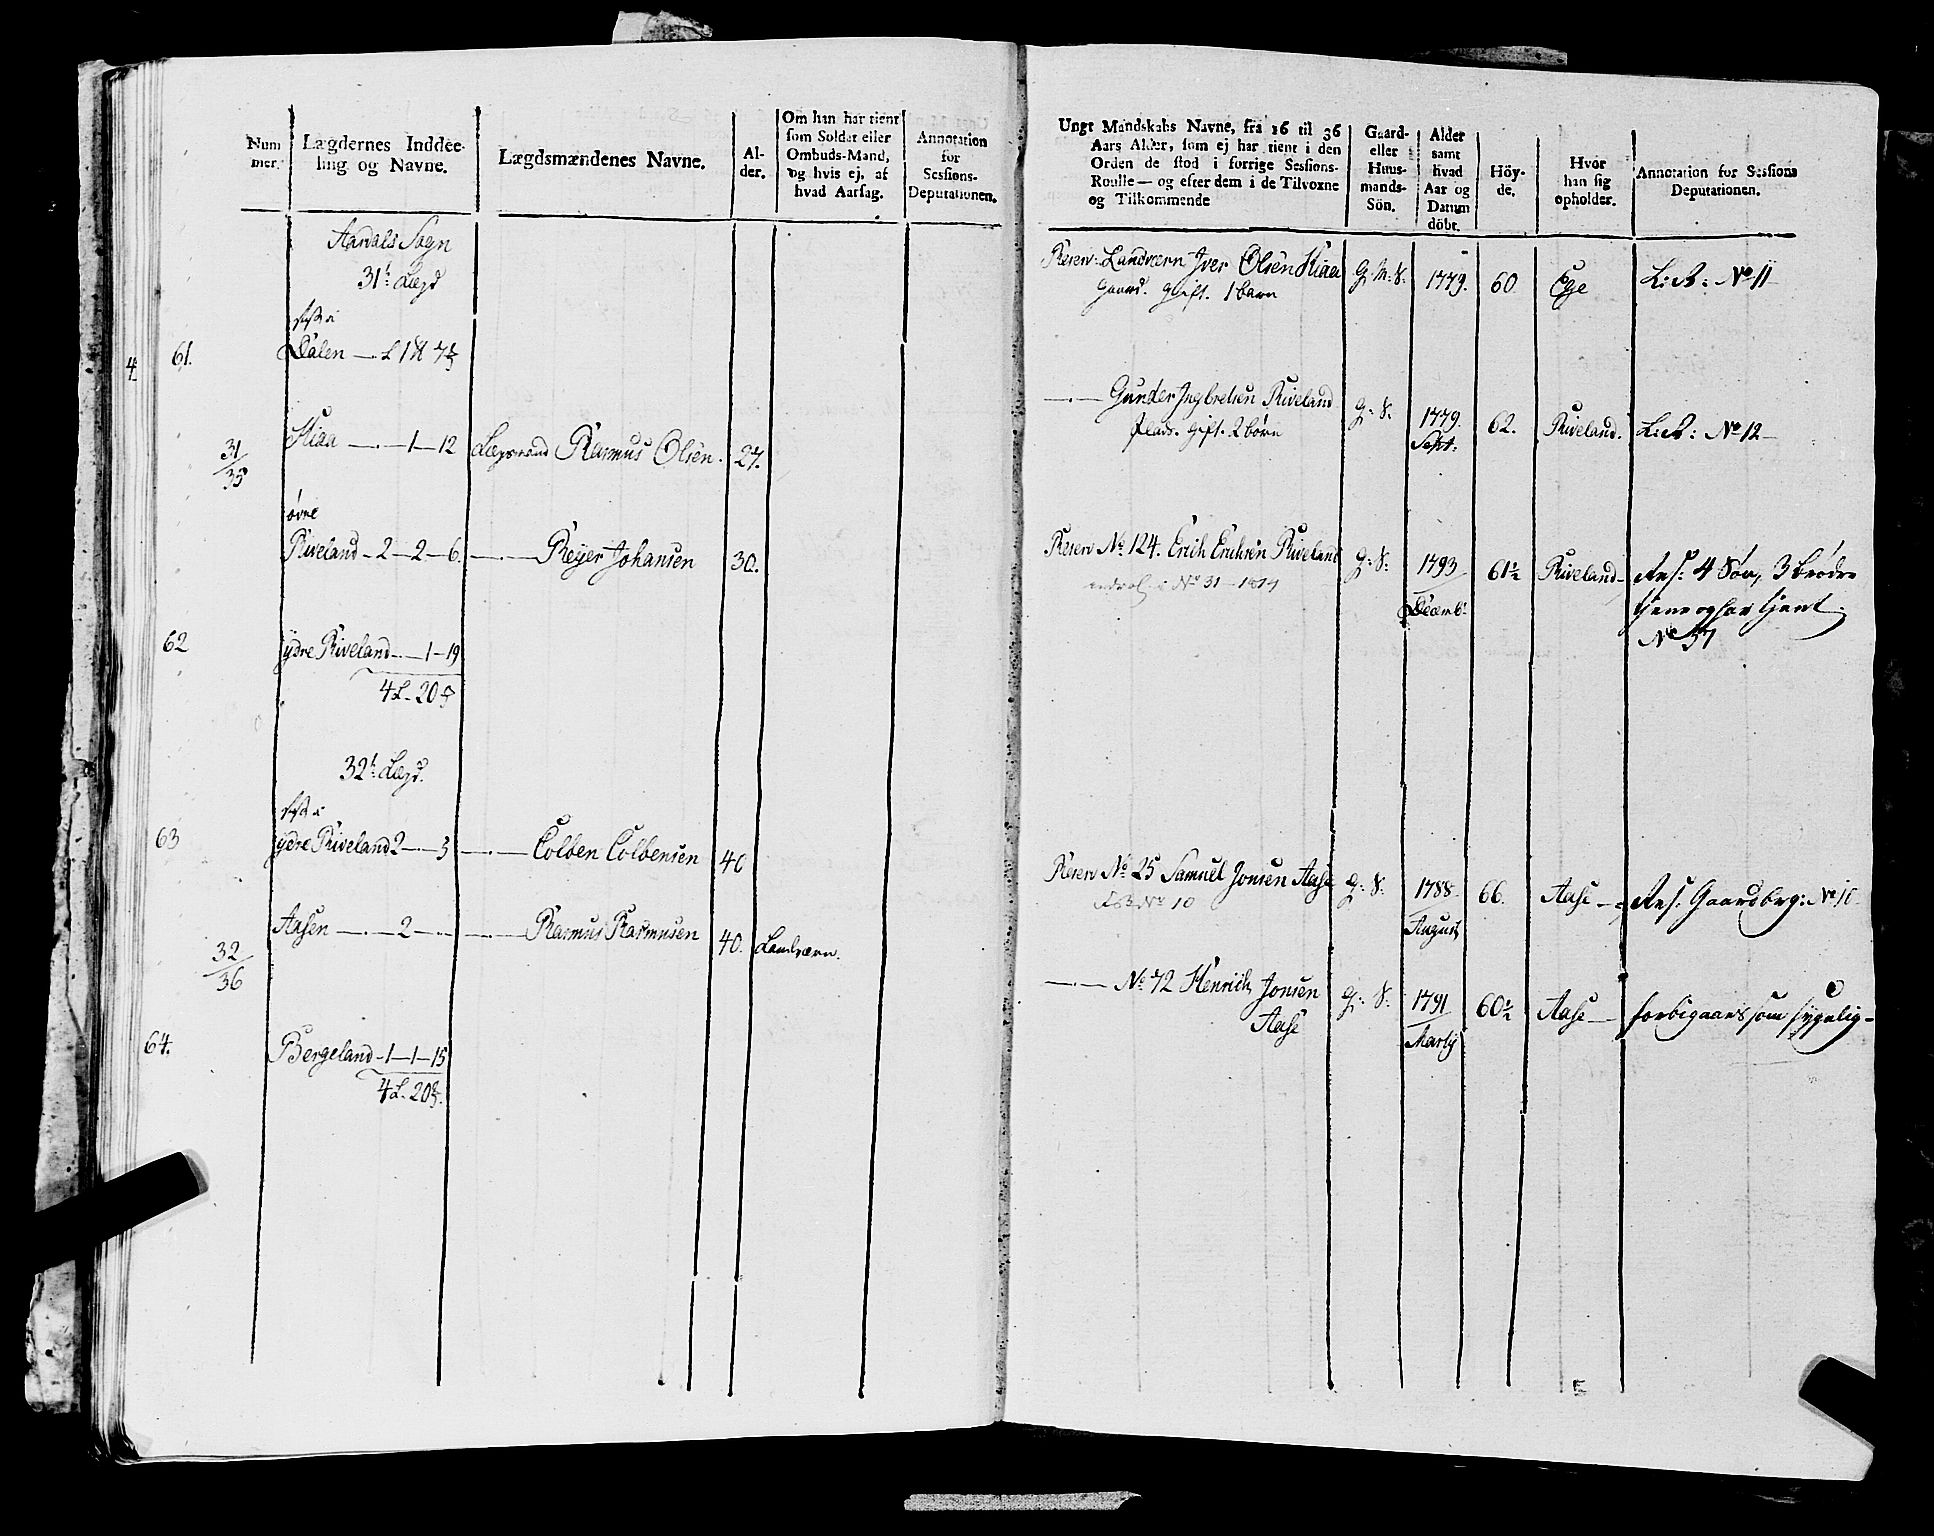 Num
mer.
Lægdernes Inddee-
ling og Navne.
Lægdsmændenes Navne.
Al-
der.
Om han har tient
som Soldat eller
Ombuds-Mand,
og hvis ej, af
hvad Aarsag.
Annotation
for
Sessions-
Deputationen.
Aardals Sogn
31te Lægd
61.
Dalen
4
Skiaa —·— 1 — 12
Lægsmand Rasmus Olsen. 27.
31/35
øvre
Riveland - 2 — 2 — 6. —·— Reyer Johansen 30.
62
ydre Riveland —·— 1 — 19
4 L. 20
32te Lægd.
63
ydre Riveland 2 —·— 3 —·— Colben Colbensen 40
Aasen —·— 2 —·— Rasmus Rasmusen 40. Landværn.
32/36
64.
Bergeland - 1 — 1 — 15
4 L. 20
Ungt Mandskabs Navne, fra 16 til 36
Aars Alder, som ej har tient i den
Orden de stod i forrige Sessions-
Roulle — og efter dem i de Tilvoxne
og Tilkommende
Gaard-
eller
Huus-
mands-
Sön.
Alder
samt
hvad
Aar og
Datum
döbt.
Höy-
de.
Hvor
han sig
opholder.
Annotation for Sessions
Deputationen.
Reserv: Landværn Iver Olsen Skiaa G. M: S: 1779. 60 Ege L: R: No 11
Gaard. gift. 1 barn
—·— Gunder Ingbretsen Riveland G: S: 1779. 62. Riveland. L: R: No 12
Plads. gift. 2 børn Sept:
Reserv No 124. Erich Erichsen Riveland G: S: 1793 61½ Riveland Res: 4 Søn, 3 brødre
No 31 - 1814 Decemb: tjene og har tjent.
No 37
Reserv No 25 Samuel Jonsen Aase G: S: 1788 66. Aase Res. Gaardbrg: No 10
No 10 August
—·— No 72 Henrich Jonsen G: S: 1791 60½ Aase forbigaaes som sygelig
Aase Martij